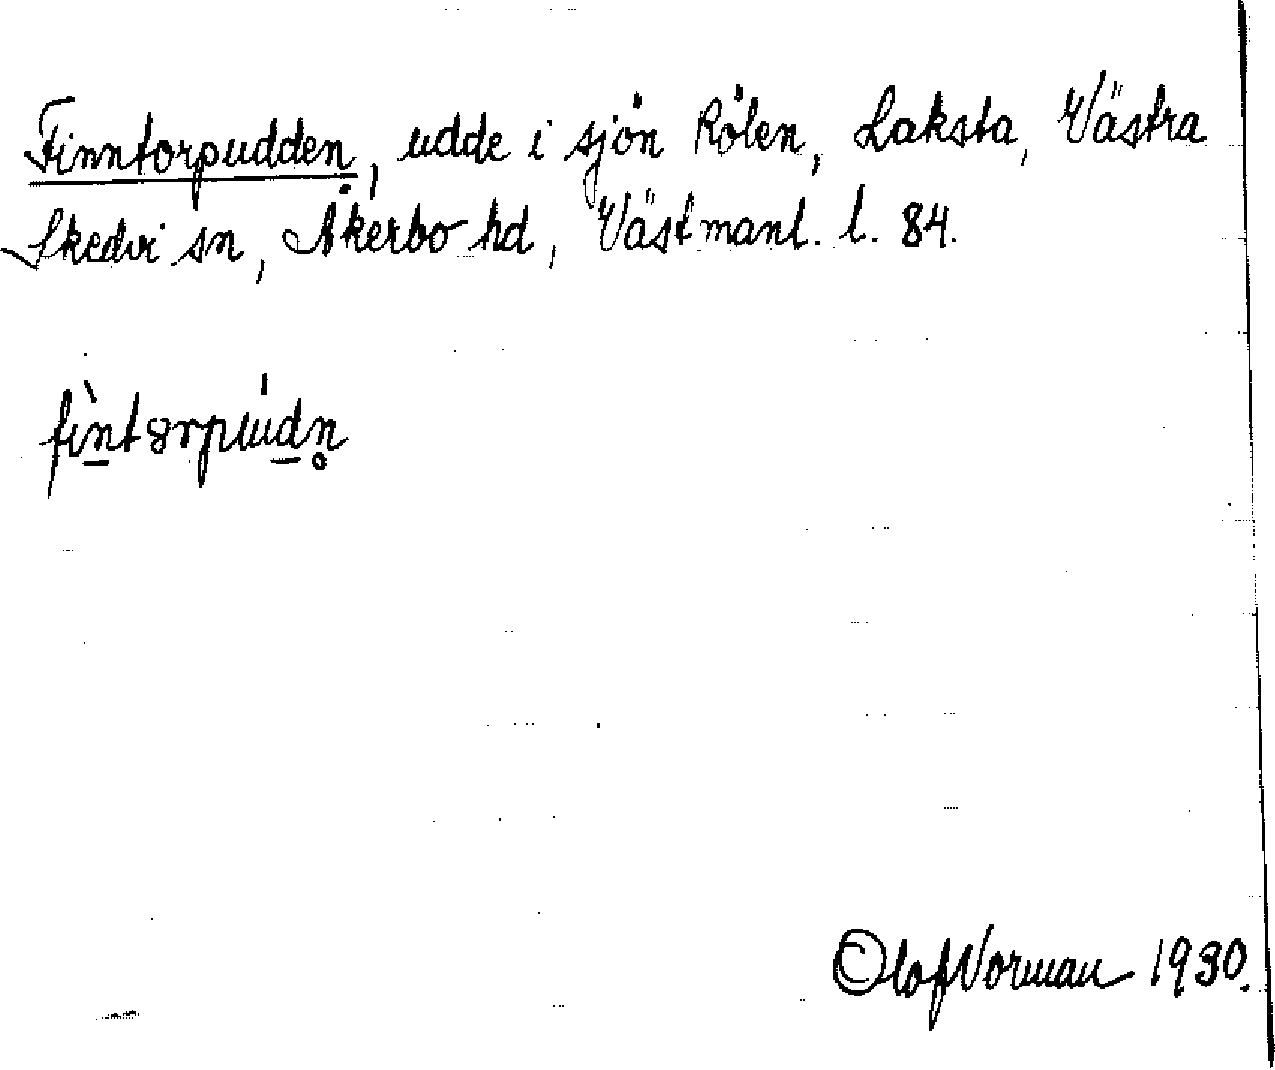 Finntorpudden, udde i sjön Rölen, Laksta, Västra
Skedvi sn, Åkerbo hd, Västmanl. l. 84.
fìntørpúdn̥
Olof Norman 1930.